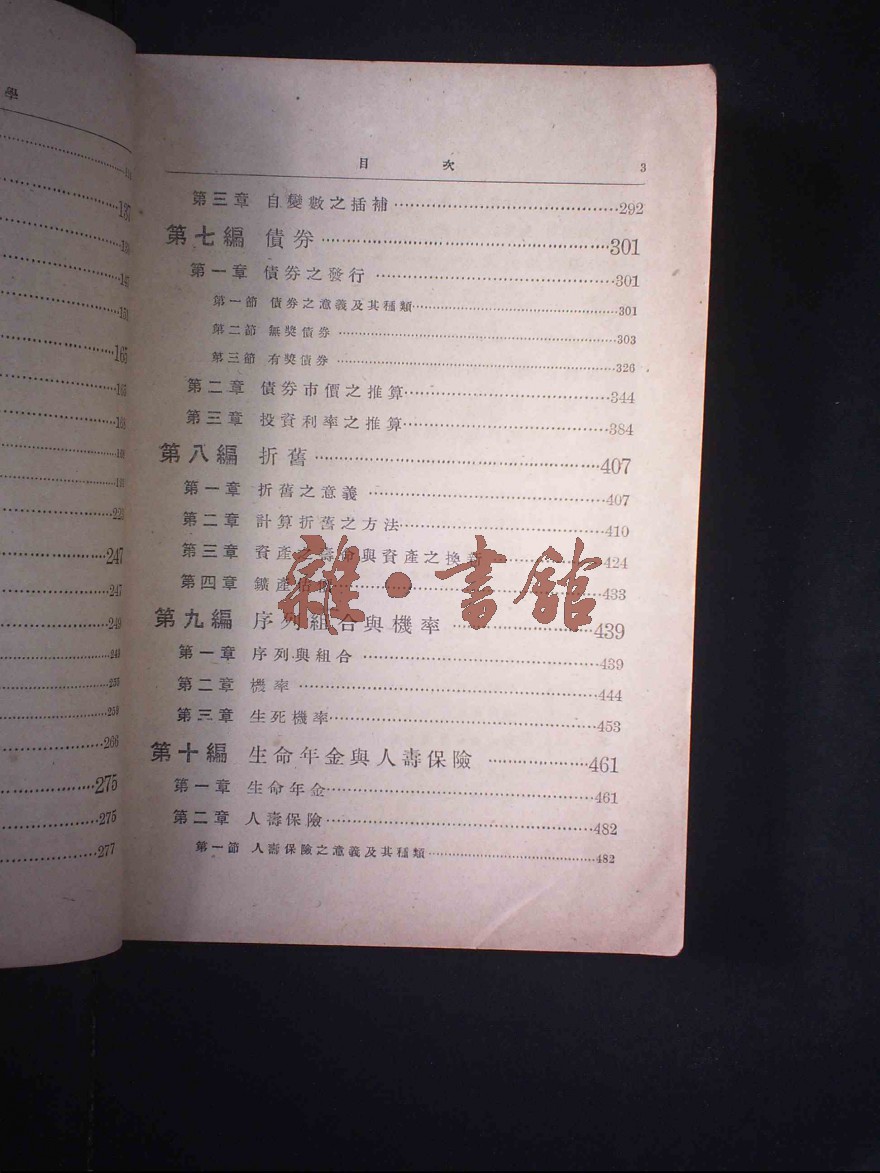 學
137
147
151
165
165
247
247
249
266
275
275
277
目 次 3
第三章 自變數之插補 292
第七編 債券 301
第一章 債券之發行 301
第一節 債券之意義及其種類 301
第二節 無獎債券 303
第三節 有獎債券 326
第二章 債券市價之推算 344
第三章 投資利率之推算 384
第八編 折舊 407
第一章 折舊之意義 407
第二章 計算折舊之方法 410
第三章 資產之壽命與資產之換新 424
第四章 鑛產估價 433
第九編 序列組合與機率 439
第一章 序列與組合 439
第二章 機率 444
第三章 生死機率 453
第十編 生命年金與人壽保險 461
第一章 生命年金 461
第二章 人壽保險 482
第一節 人壽保險之意義及其種類 482
雜·書館